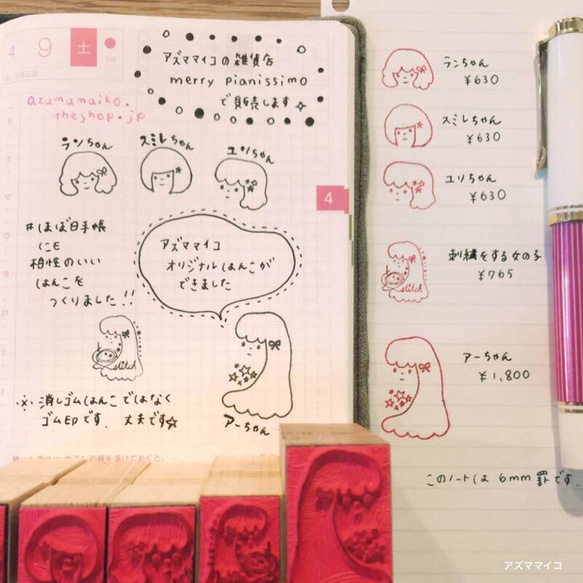 4 9 土
アズママイコの雑貨店
merry pianissimo
で販売します☆
azumamaiko.
theshop.jp
ランちゃん
スミレちゃん
ユリちゃん
#ほぼ日手帳
にも
相性のいい
はんこを
つくりました!!
アズママイコ
オリジナルはんこが
できました
stitch
※消しゴムはんこではなく
ゴム印です。丈夫です☆
アーちゃん
4
ランちゃん
¥630
スミレちゃん
¥630
ユリちゃん
¥630
刺繍をする女の子
¥765
stitch
アーちゃん
¥1,800
このノートは 6mm 罫です.
アズママイコ